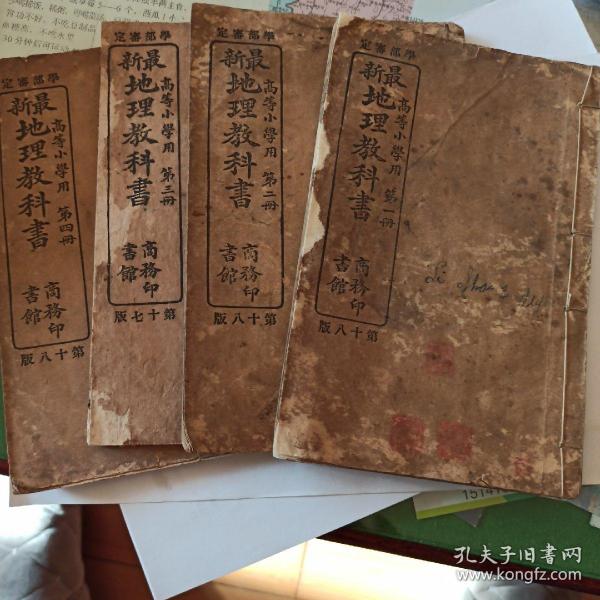 學部審定
最新地理教科書
高等小學用 第四冊
商務印書館
第十八版
學部審定
最新地理教科書
高等小學用 第三冊
商務印書館
第十七版
學部審定
最新地理教科書
高等小學用 第二冊
商務印書館
第十八版
學部審定
最新地理教科書
高等小學用 第一冊
商務印書館
第十八版
Li
孔夫子旧书网
www.kongfz.com